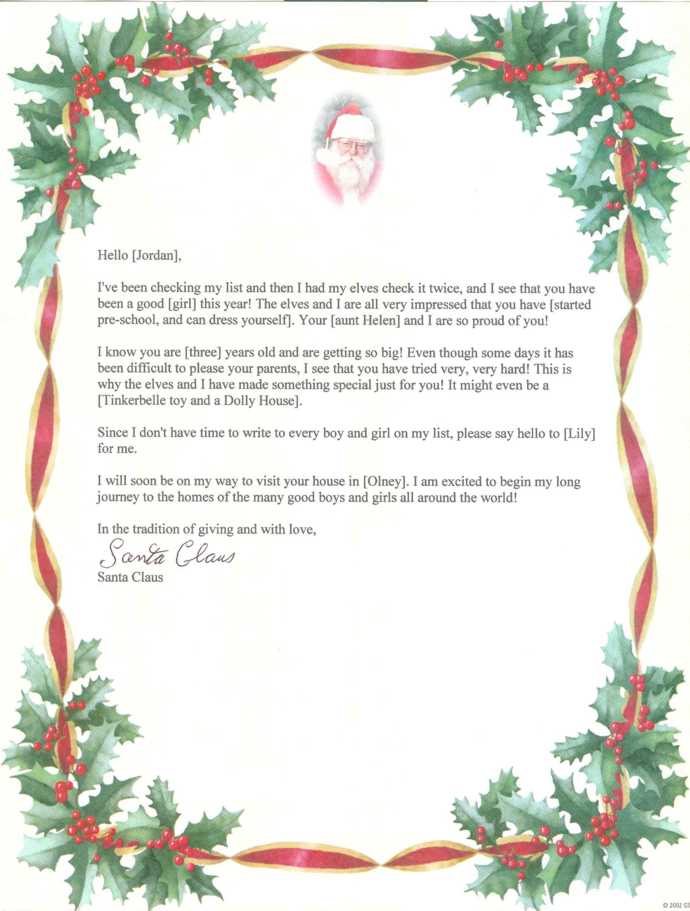 Hello [Jordan],
I've been checking my list and then I had my elves check it twice, and I see that you have
been a good [girl] this year! The elves and I are all very impressed that you have [started
pre-school, and can dress yourself]. Your [aunt Helen] and I are so proud of you!
I know you are [three] years old and are getting so big! Even though some days it has
been difficult to please your parents, I see that you have tried very, very hard! This is
why the elves and I have made something special just for you! It might even be a
[Tinkerbelle toy and a Dolly House].
Since I don't have time to write to every boy and girl on my list, please say hello to [Lily]
for me.
I will soon be on my way to visit your house in [Olney]. I am excited to begin my long
journey to the homes of the many good boys and girls all around the world!
In the tradition of giving and with love,
Santa Claus
Santa Claus
© 2002